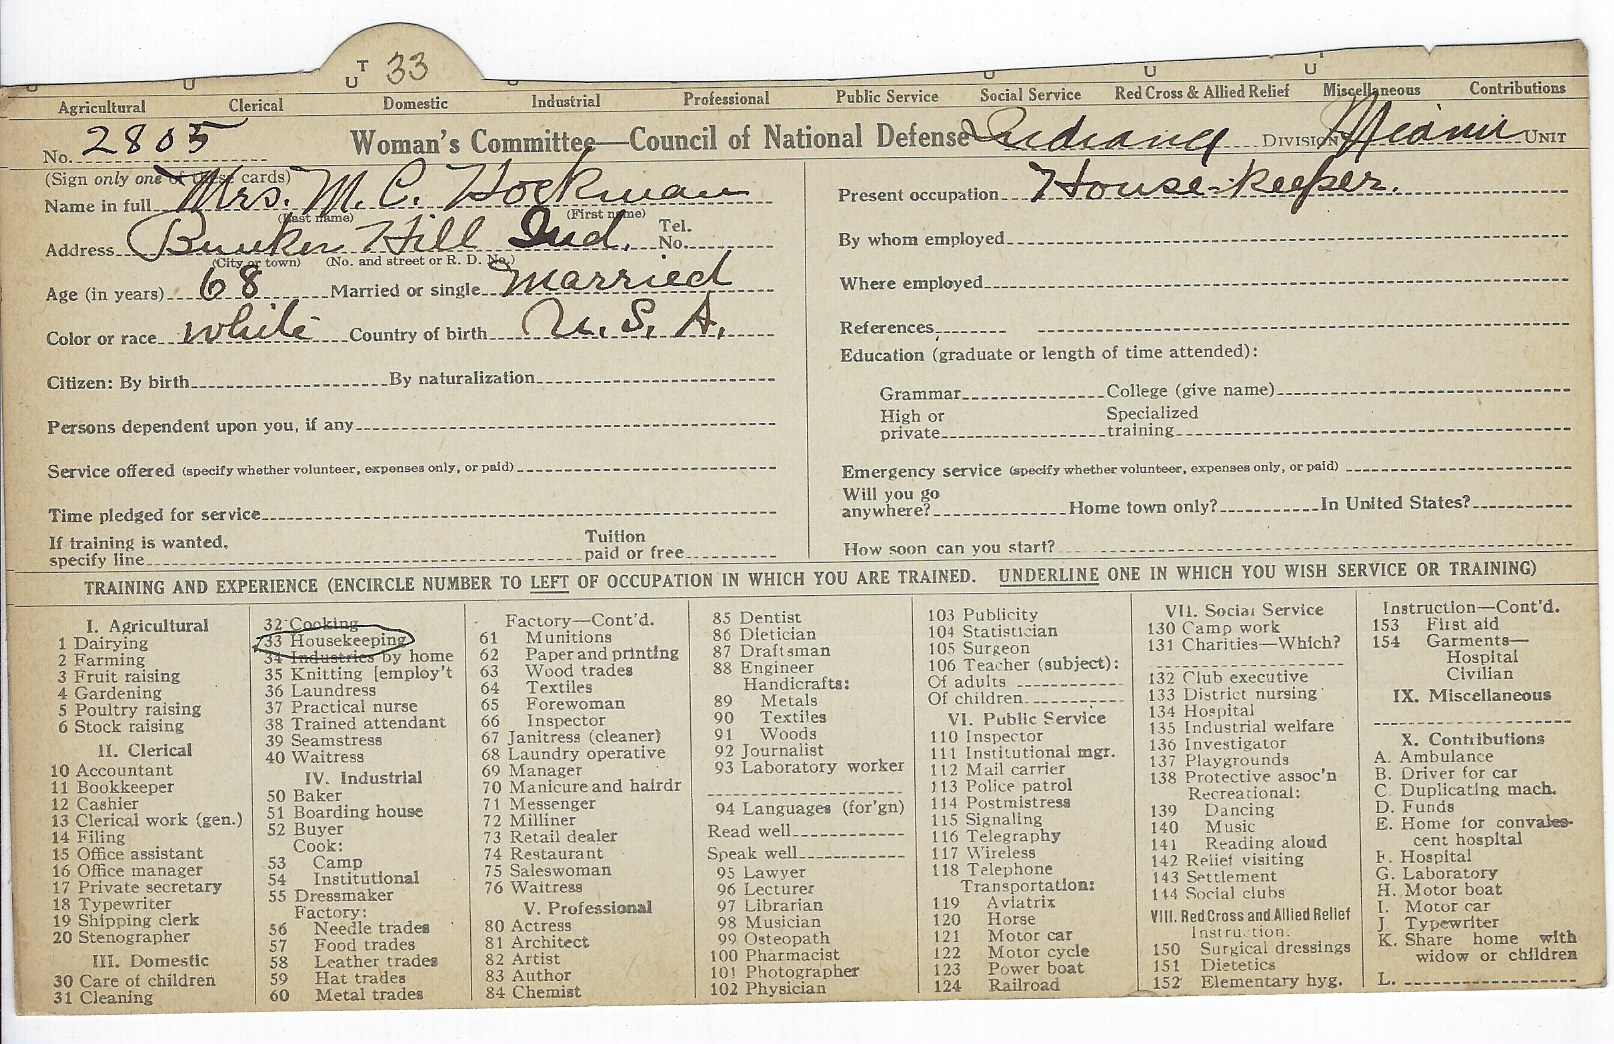 U T 33
U U U U U U
Agricultural Clerical Domestic Industrial Professional Public Service Social Service Red Cross & Allied Relief Miscellaneous Contributions
No. 2805 Woman's Committee—Council of National Defense Indiana DIVISION Miami UNIT
(Sign only one of these cards)
Name in full Mrs. M. C. Hockman
(Last name) (First name)
Address Bunker Hill Ind. Tel. No.
(City or town) (No. and street or R. D. No.)
Age (in years) 68 Married or single married
Color or race white Country of birth U. S. A.
Citizen: By birth By naturalization
Persons dependent upon you, if any
Service offered (specify whether volunteer, expenses only, or paid)
Time pledged for service
If training is wanted, specify line Tuition paid or free
Present occupation House-keeper.
By whom employed
Where employed
References
Education (graduate or length of time attended):
Grammar College (give name)
High or private Specialized training
Emergency service (specify whether volunteer, expenses only, or paid)
Will you go anywhere? Home town only? In United States?
How soon can you start?
TRAINING AND EXPERIENCE (ENCIRCLE NUMBER TO LEFT OF OCCUPATION IN WHICH YOU ARE TRAINED. UNDERLINE ONE IN WHICH YOU WISH SERVICE OR TRAINING)
I. Agricultural
1 Dairying
2 Farming
3 Fruit raising
4 Gardening
5 Poultry raising
6 Stock raising
II. Clerical
10 Accountant
11 Bookkeeper
12 Cashier
13 Clerical work (gen.)
14 Filing
15 Office assistant
16 Office manager
17 Private secretary
18 Typewriter
19 Shipping clerk
20 Stenographer
III. Domestic
30 Care of children
31 Cleaning
32 Cooking
33 Housekeeping
34 Industries by home
35 Knitting [employ't
36 Laundress
37 Practical nurse
38 Trained attendant
39 Seamstress
40 Waitress
IV. Industrial
50 Baker
51 Boarding house
52 Buyer
Cook:
53 Camp
54 Institutional
55 Dressmaker
Factory:
56 Needle trades
57 Food trades
58 Leather trades
59 Hat trades
60 Metal trades
Factory—Cont'd.
61 Munitions
62 Paper and printing
63 Wood trades
64 Textiles
65 Forewoman
66 Inspector
67 Janitress (cleaner)
68 Laundry operative
69 Manager
70 Manicure and hairdr
71 Messenger
72 Milliner
73 Retail dealer
74 Restaurant
75 Saleswoman
76 Waitress
V. Professional
80 Actress
81 Architect
82 Artist
83 Author
84 Chemist
85 Dentist
86 Dietician
87 Draftsman
88 Engineer
Handicrafts:
89 Metals
90 Textiles
91 Woods
92 Journalist
93 Laboratory worker
94 Languages (for'gn)
Read well
Speak well
95 Lawyer
96 Lecturer
97 Librarian
98 Musician
99 Osteopath
100 Pharmacist
101 Photographer
102 Physician
103 Publicity
104 Statistician
105 Surgeon
106 Teacher (subject):
Of adults
Of children
VI. Public Service
110 Inspector
111 Institutional mgr.
112 Mail carrier
113 Police patrol
114 Postmistress
115 Signaling
116 Telegraphy
117 Wireless
118 Telephone
Transportation:
119 Aviatrix
120 Horse
121 Motor car
122 Motor cycle
123 Power boat
124 Railroad
VII. Social Service
130 Camp work
131 Charities—Which?
132 Club executive
133 District nursing
134 Hospital
135 Industrial welfare
136 Investigator
137 Playgrounds
138 Protective assoc'n
Recreational:
139 Dancing
140 Music
141 Reading aloud
142 Relief visiting
143 Settlement
144 Social clubs
VIII. Red Cross and Allied Relief
Instruction:
150 Surgical dressings
151 Dietetics
152 Elementary hyg.
Instruction—Cont'd.
153 First aid
154 Garments—
Hospital
Civilian
IX. Miscellaneous
X. Contributions
A. Ambulance
B. Driver for car
C. Duplicating mach.
D. Funds
E. Home for convales-
cent hospital
F. Hospital
G. Laboratory
H. Motor boat
I. Motor car
J. Typewriter
K. Share home with
widow or children
L.